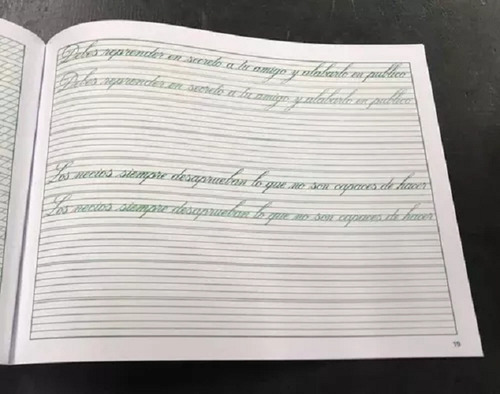 Debes reprender en secreto a tu amigo y alabarlo en publico
Debes reprender en secreto a tu amigo y alabarlo en publico
Los necios siempre desaprueban lo que no son capaces de hacer
Los necios siempre desaprueban lo que no son capaces de hacer